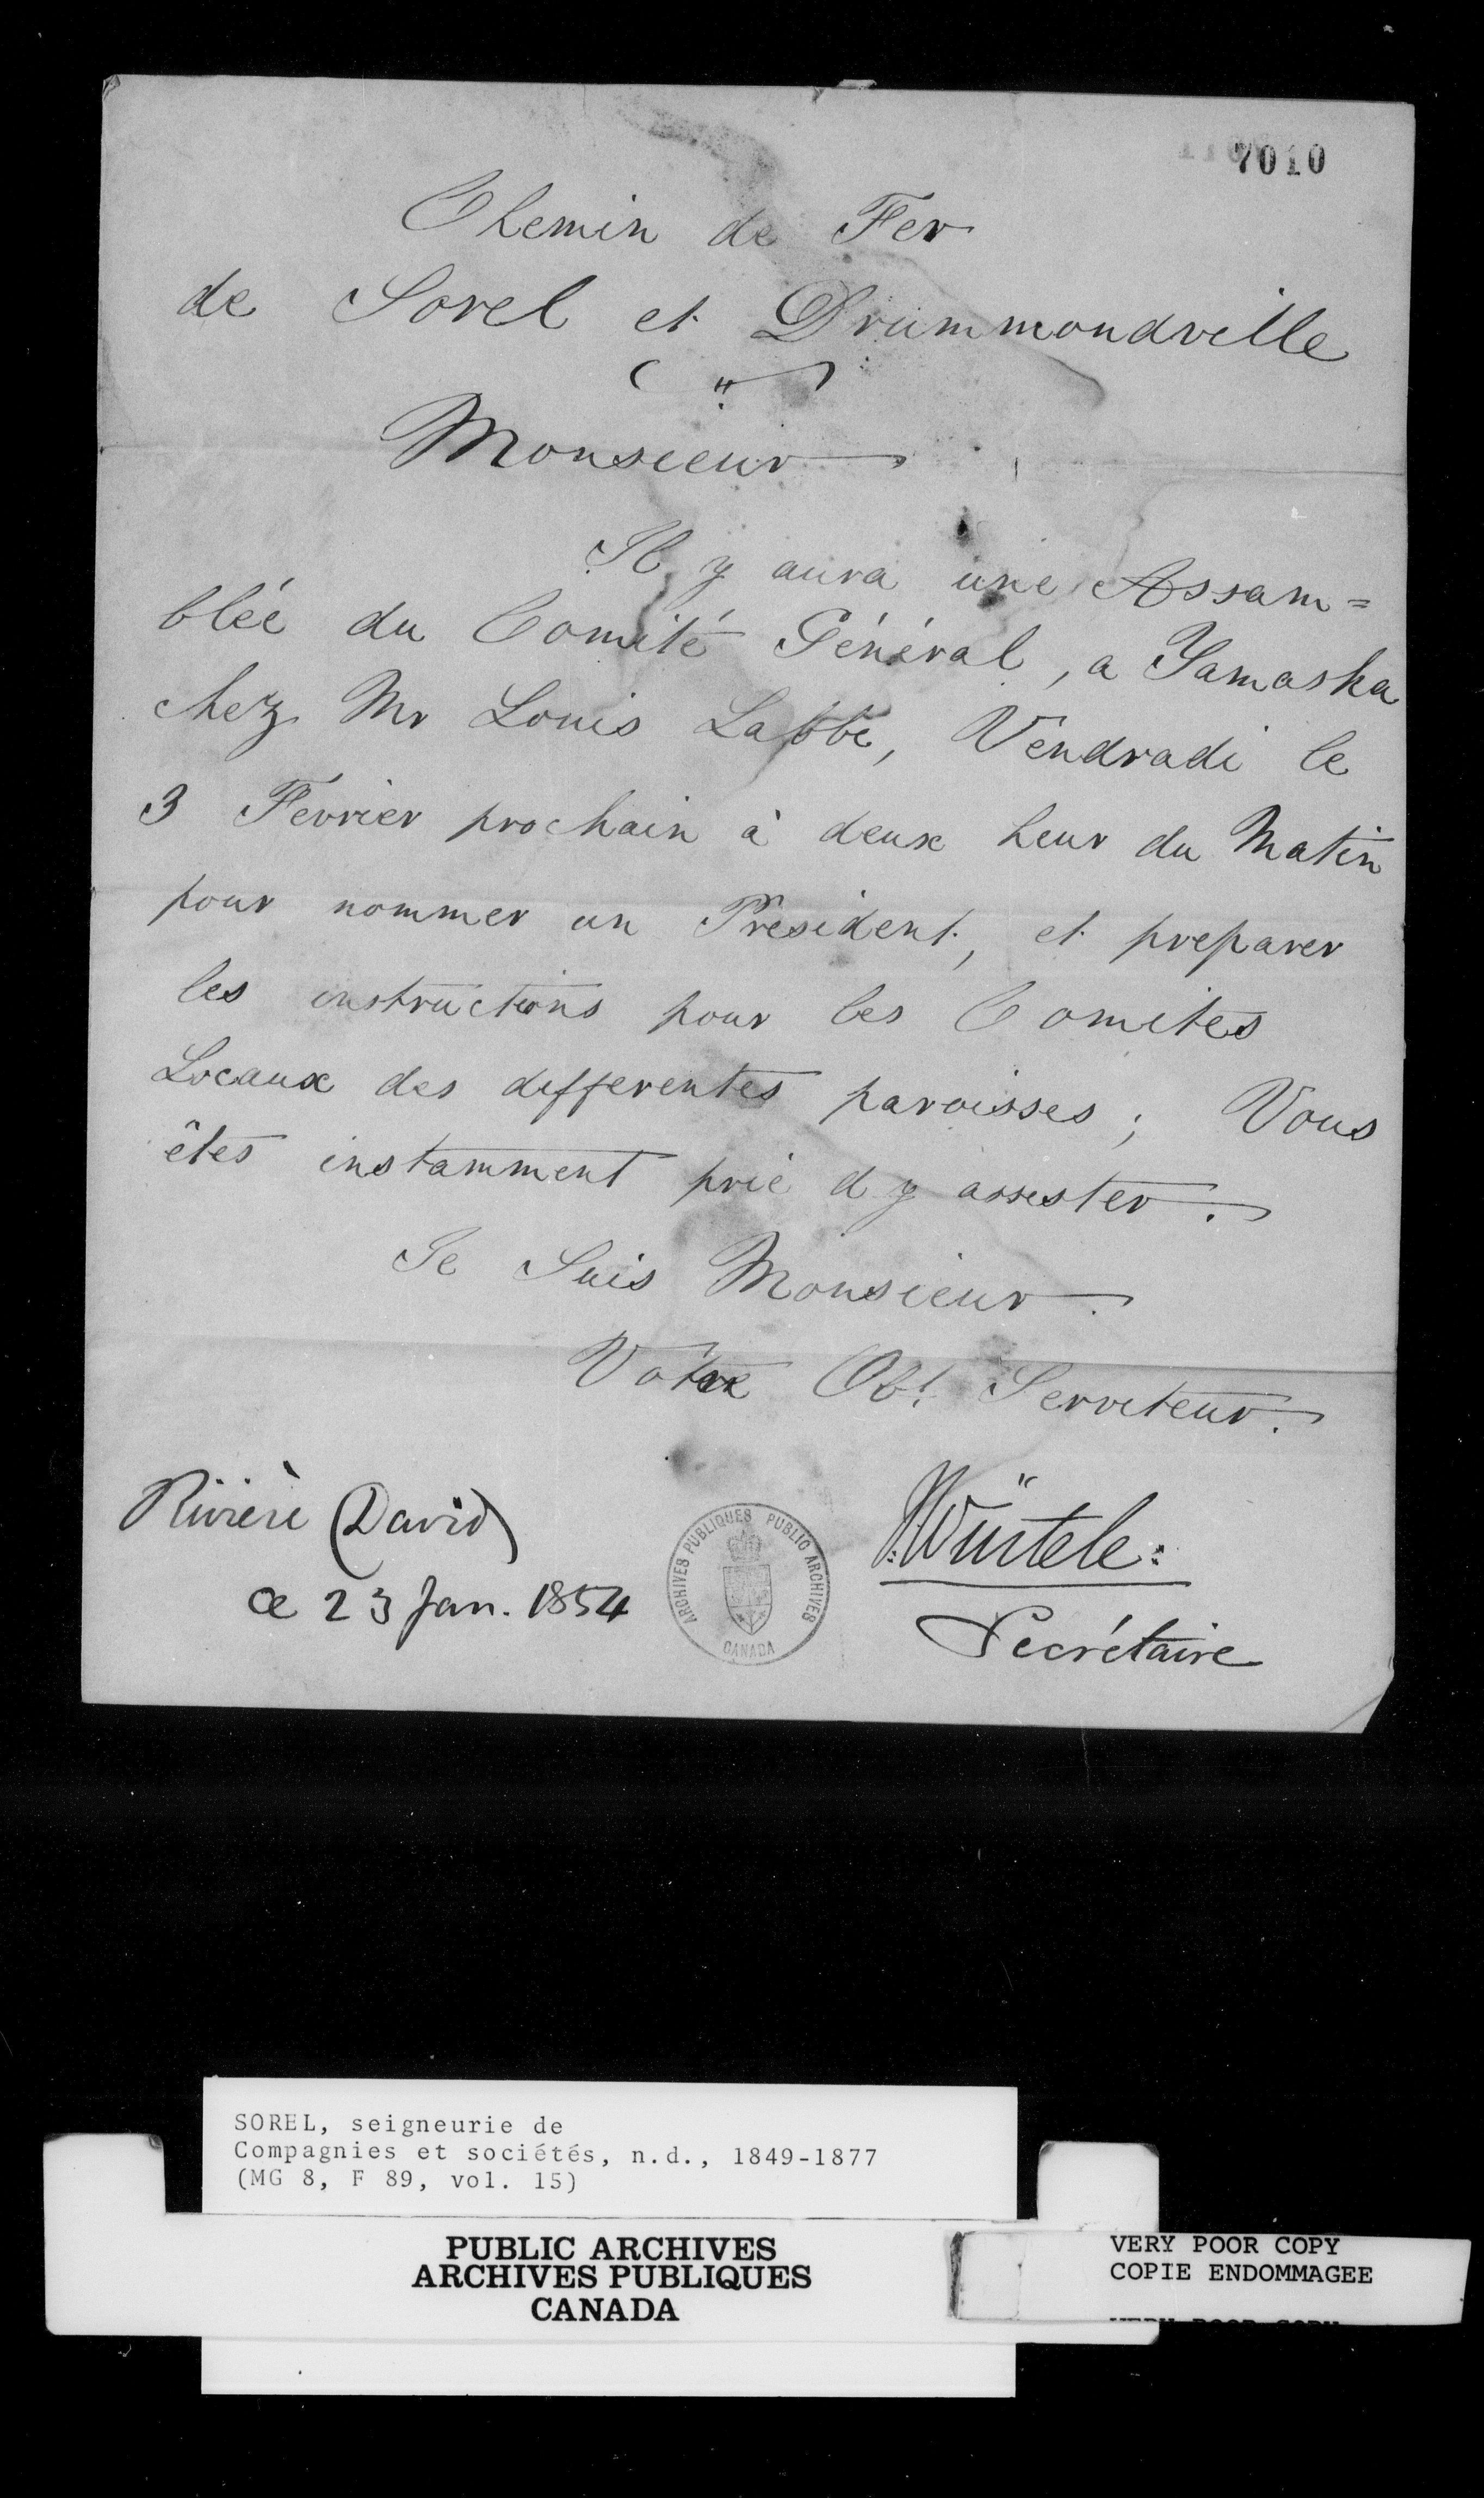 7010
Chemin de Fer
de Sorel et Drummondville
Monsieur
Il y aura une Assam=
blée du Comité Général, a Yamaska
chez Mr Louis Labbe, Vendradi le
3 Fevrier prochain à deux heur du Matin
pour nommer un President, et preparer
les instructions pour les Comites
Locaux des differentes paroisses; Vous
êtes instamment prié d y assister.
Je Suis Monsieur
Votre Obt. Serviteur.
Rivière (David)
ce 23 Jan. 1854
Würtele:
Secrétaire
ARCHIVES PUBLIQUES PUBLIC ARCHIVES
CANADA
SOREL, seigneurie de
Compagnies et sociétés, n.d., 1849-1877
(MG 8, F 89, vol. 15)
PUBLIC ARCHIVES
ARCHIVES PUBLIQUES
CANADA
VERY POOR COPY
COPIE ENDOMMAGEE
VERY POOR COPY